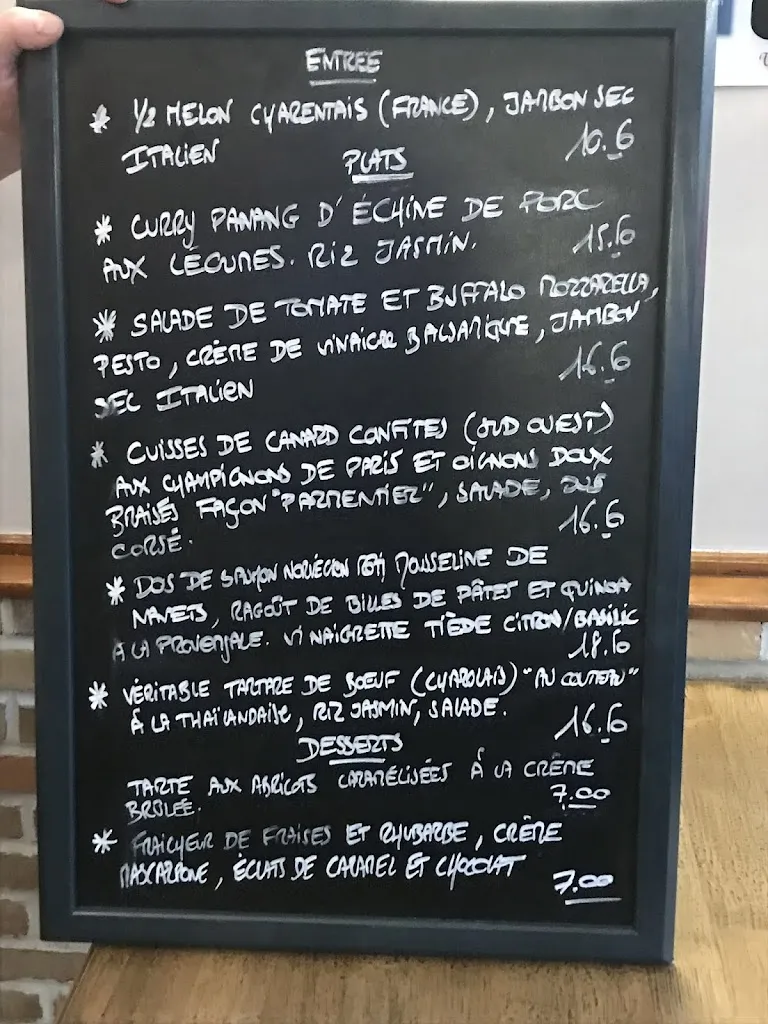 ENTREE
* 1/2 MELON CHARENTAIS (FRANCE), JAMBON SEC
ITALIEN 10.6
PLATS
* CURRY PANANG D'ÉCHINE DE PORC
AUX LEGUMES. RIZ JASMIN. 15.6
* SALADE DE TOMATE ET BUFFALO MOZZARELLA,
PESTO, CRÈME DE VINAIGRE BALSAMIQUE, JAMBON
SEC ITALIEN 16.6
* CUISSES DE CANARD CONFITES (SUD OUEST)
AUX CHAMPIGNONS DE PARIS ET OIGNONS DOUX
BRAISÉS FAÇON "PARMENTIER", SALADE, JUS
CORSÉ. 16.6
* DOS DE SAUMON NORVÉGIEN RÔTI MOUSSELINE DE
NAVETS, RAGOÛT DE BILLES DE PÂTES ET QUINOA
À LA PROVENÇALE. VINAIGRETTE TIÈDE CITRON/BASILIC
18.6
* VÉRITABLE TARTARE DE BŒUF (CHAROLAIS) "AU COUTEAU"
À LA THAÏLANDAISE, RIZ JASMIN, SALADE. 16.6
DESSERTS
TARTE AUX ABRICOTS CARAMÉLISÉES À LA CRÈME
BRULÉE. 7.00
* FRAICHEUR DE FRAISES ET RHUBARBE, CRÈME
MASCARPONE, ÉCLATS DE CARAMEL ET CHOCOLAT
7.00